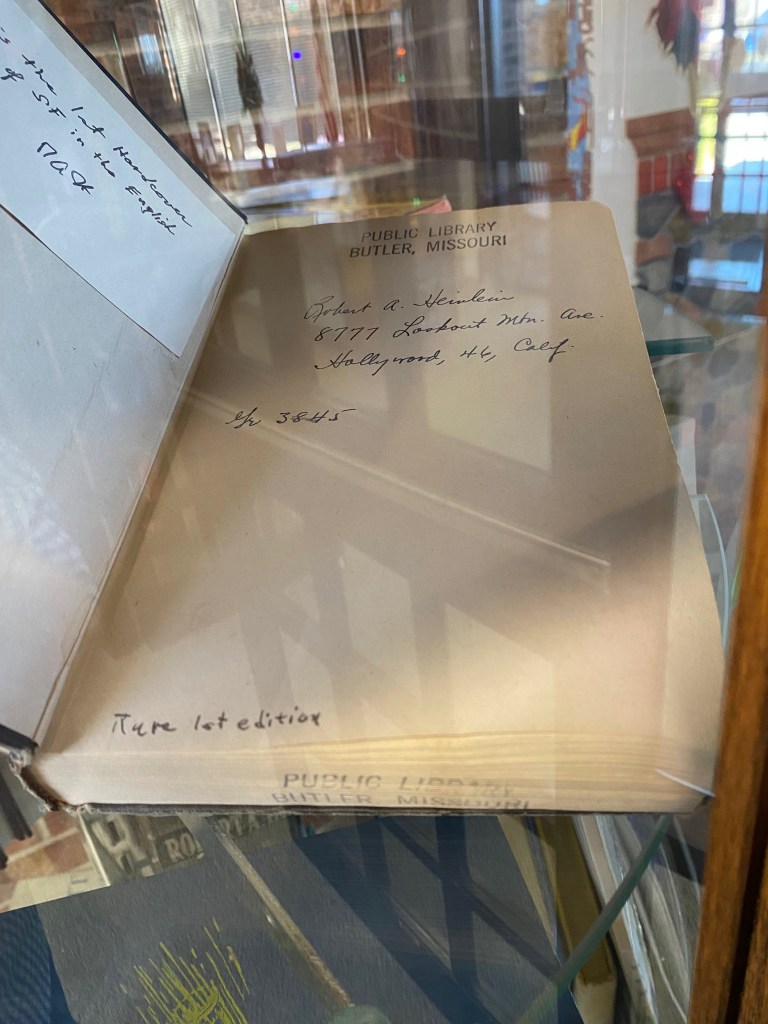 is the 1st Hardcover
of SF in the English
PUBLIC LIBRARY
BUTLER, MISSOURI
Robert A. Heinlein
8777 Lookout Mtn. Ave.
Hollywood, 46, Calif.
3845
Rare 1st edition
PUBLIC LIBRARY
BUTLER, MISSOURI
RO